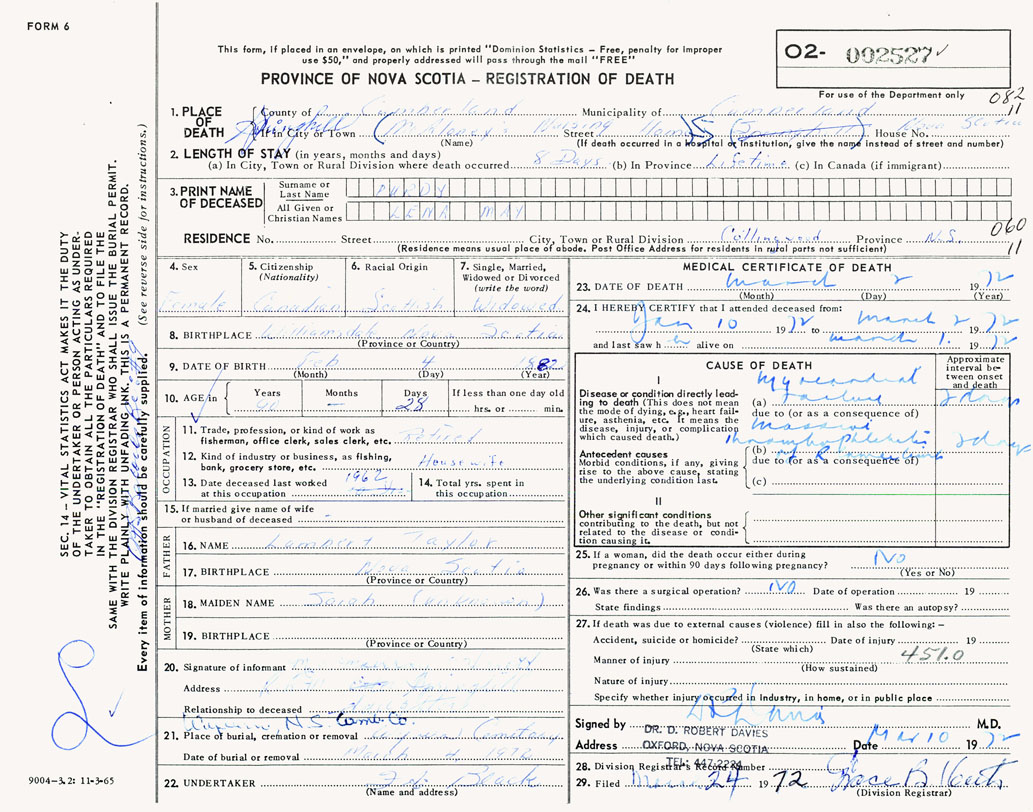 FORM 6
This form, if placed in an envelope, on which is printed "Dominion Statistics – Free, penalty for improper
use $50," and properly addressed will pass through the mail "FREE"
PROVINCE OF NOVA SCOTIA – REGISTRATION OF DEATH
O2- 002527
For use of the Department only
082
11
1. PLACE OF DEATH
County of Cumberland Municipality of Cumberland
Springhill If in City or Town Nursing Home Street House No. Nova Scotia
(Name) (If death occurred in a hospital or institution, give the name instead of street and number)
2. LENGTH OF STAY (in years, months and days)
(a) In City, Town or Rural Division where death occurred 8 Days (b) In Province Lifetime (c) In Canada (if immigrant)
3. PRINT NAME OF DECEASED
Surname or Last Name PURDY
All Given or Christian Names LENA MAY
060
11
RESIDENCE No. Street City, Town or Rural Division Collingwood Province N.S.
(Residence means usual place of abode. Post Office Address for residents in rural parts not sufficient)
4. Sex Female
5. Citizenship (Nationality) Canadian
6. Racial Origin Scottish
7. Single, Married, Widowed or Divorced (write the word) Widowed
8. BIRTHPLACE Williamsdale Nova Scotia
(Province or Country)
9. DATE OF BIRTH Feb 4 1882
(Month) (Day) (Year)
10. AGE in Years 90 Months – Days 28 If less than one day old
hrs. or min.
OCCUPATION
11. Trade, profession or kind of work as
fisherman, office clerk, sales clerk, etc. Retired
12. Kind of industry or business, as fishing,
bank, grocery store, etc. Housewife
13. Date deceased last worked
at this occupation 1962
14. Total yrs. spent in
this occupation
15. If married give name of wife
or husband of deceased -
FATHER
16. NAME Lambert Taylor
17. BIRTHPLACE Nova Scotia
(Province or Country)
MOTHER
18. MAIDEN NAME Sarah (unknown)
19. BIRTHPLACE
(Province or Country)
20. Signature of informant
Address Springhill
Relationship to deceased
N.S. Cumb. Co.
21. Place of burial, cremation or removal Cemetery
Date of burial or removal March 4, 1972
22. UNDERTAKER Black
(Name and address)
MEDICAL CERTIFICATE OF DEATH
23. DATE OF DEATH March 2 1972
(Month) (Day) (Year)
24. I HEREBY CERTIFY that I attended deceased from:
Jan 10 1972 to March 2 1972
and last saw h er alive on March 1. 1972
CAUSE OF DEATH
Approximate interval between onset and death
I
Disease or condition directly leading to death (This does not mean the mode of dying, e.g., heart failure, asthenia, etc. It means the disease, injury, or complication which caused death.)
(a) Myocardial Failure 2 days
due to (or as a consequence of)
Antecedent causes
Morbid conditions, if any, giving rise to the above cause, stating the underlying condition last.
Massive thrombophlebitis
(b) of R 2 days
due to (or as a consequence of)
(c)
II
Other significant conditions
contributing to the death, but not
related to the disease or condition causing it.
25. If a woman, did the death occur either during
pregnancy or within 90 days following pregnancy? NO
(Yes or No)
26. Was there a surgical operation? NO Date of operation 19
State findings Was there an autopsy?
27. If death was due to external causes (violence) fill in also the following: –
Accident, suicide or homicide? Date of injury 19
(State which)
451.0
Manner of injury
(How sustained)
Nature of injury
Specify whether injury occurred in industry, in home, or in public place
Signed by M.D.
DR. D. ROBERT DAVIES
Address OXFORD, NOVA SCOTIA Date Mar 10 1972
TEL: 447-2224
28. Division Registrar's Record Number
29. Filed March 24 1972 Grace B
(Division Registrar)
SEC. 14 – VITAL STATISTICS ACT MAKES IT THE DUTY
OF THE UNDERTAKER OR PERSON ACTING AS UNDER-
TAKER TO OBTAIN ALL THE PARTICULARS REQUIRED
IN THE "REGISTRATION OF DEATH" AND TO FILE THE
SAME WITH THE DIVISION REGISTRAR WHO SHALL ISSUE THE BURIAL PERMIT.
WRITE PLAINLY WITH UNFADING INK. THIS IS A PERMANENT RECORD.
Every item of information should be carefully supplied. (See reverse side for instructions.)
9004-3.2: 11-3-65